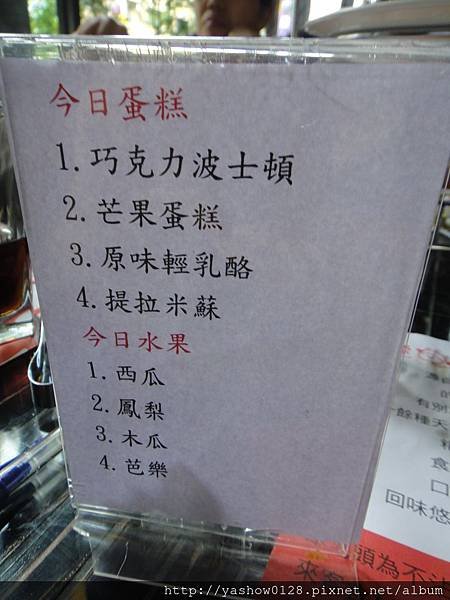 今日蛋糕
1.巧克力波士頓
2.芒果蛋糕
3.原味輕乳酪
4.提拉米蘇
今日水果
1.西瓜
2.鳳梨
3.木瓜
4.芭樂
餘種天
食
口
回味悠
頭為不
來
http://yashow0128.pixnet.net/album